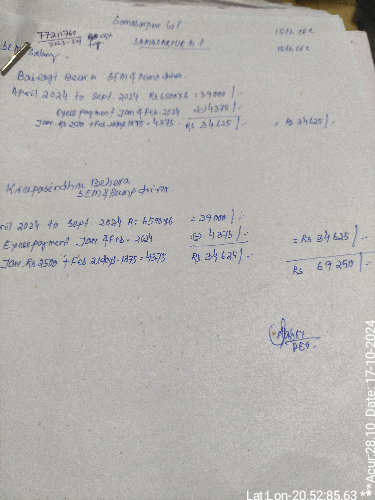 Sambarpur G.P 15th CFC
77211760
2023-24
SEM Salary SAMBARPUR G.P 15th CFC
Bairagi Beera SEM & Pump driver
April 2024 to Sept. 2024 Rs 6500x6 = 39000/-
Exess payment Jan & Feb-2024 (-) 4375/-
Jan. Rs 2500 + Feb 21 days 1875 = 4375. Rs 34625/- = Rs 34625/-
Krupasindhu Behera
SEM & Pump driver
ril 2024 to Sept. 2024 Rs 6500x6 = 39000/-
Exess payment Jan & Feb - 2024 (-) 4375/- = Rs 34625/-
Jan. Rs 2500 + Feb 21 days - 1875 = 4375 Rs 34625/- Rs 69250/-
Lat:Lon-20.52:85.63 ***Acur:28.10 Date:17-10-2024